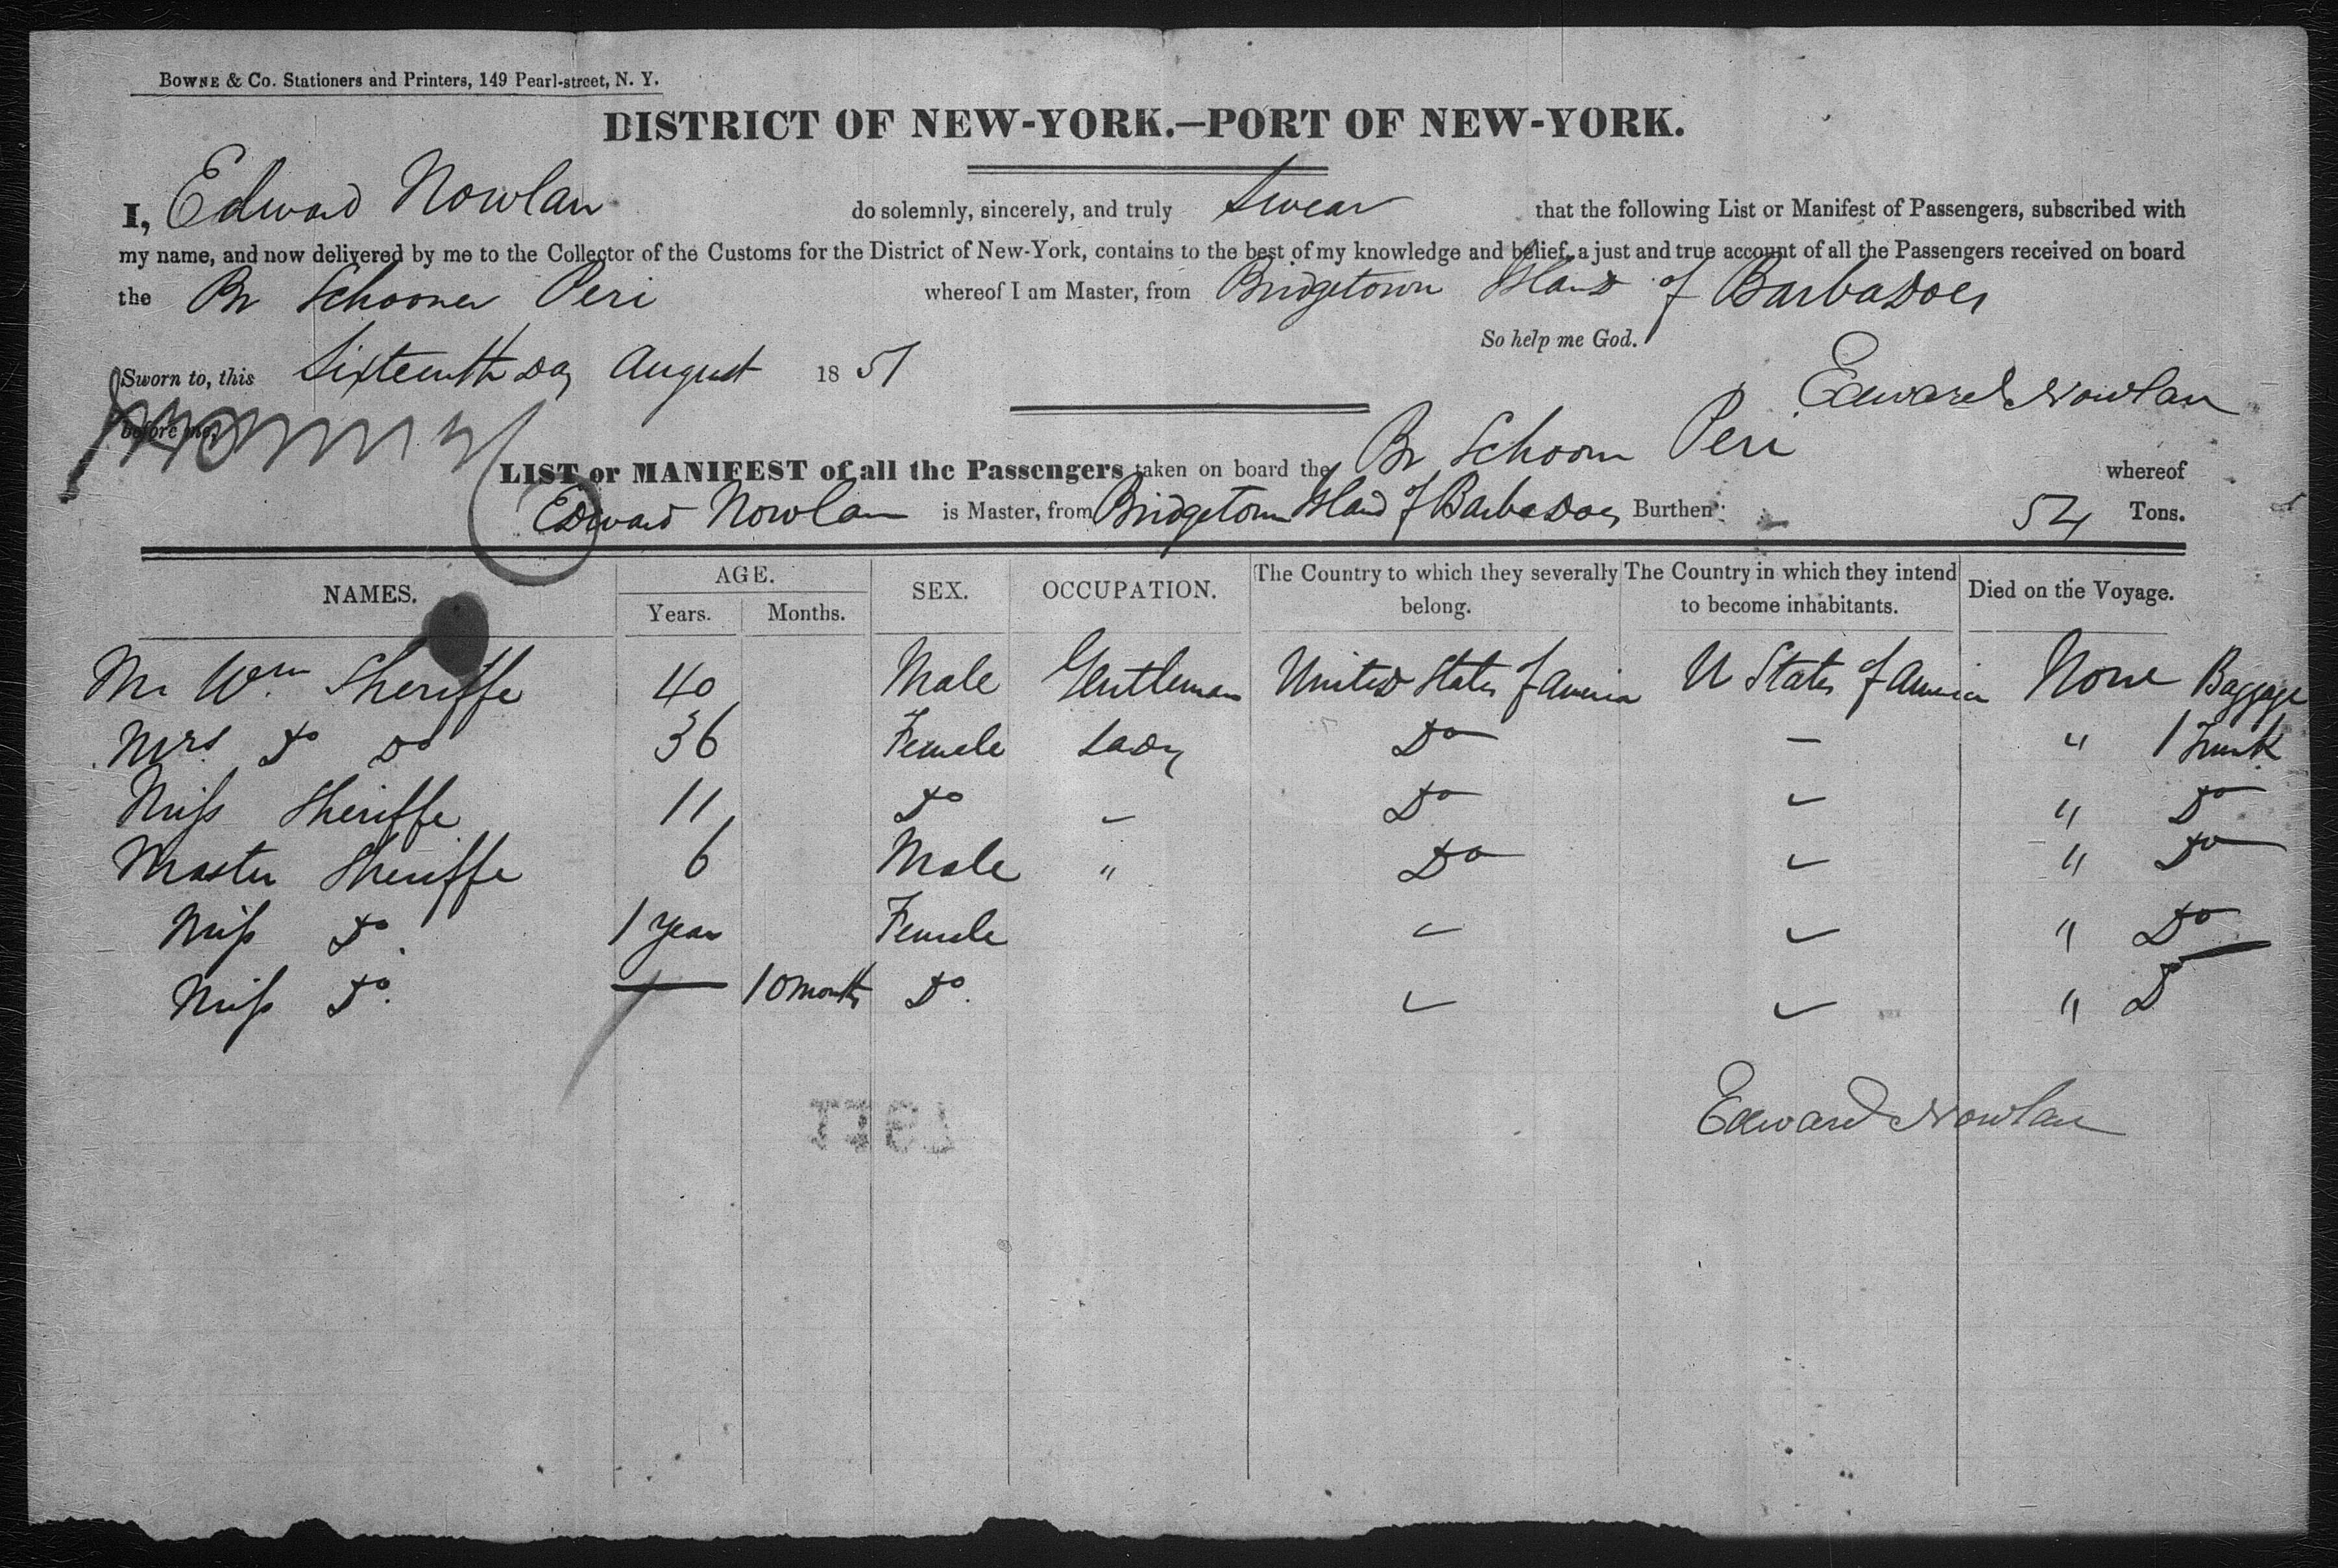 BOWNE & CO. Stationers and Printers, 149 Pearl-street, N. Y.
DISTRICT OF NEW-YORK.—PORT OF NEW-YORK.
I, Edward Nowlan do solemnly, sincerely, and truly Swear that the following List or Manifest of Passengers, subscribed with
my name, and now delivered by me to the Collector of the Customs for the District of New-York, contains to the best of my knowledge and belief, a just and true account of all the Passengers received on board
the Br Schooner Peri whereof I am Master, from Bridgetown Island of Barbadoes
So help me God.
Sworn to, this Sixteenth Day August 1851
Edward Nowlan
before me,
LIST or MANIFEST of all the Passengers taken on board the Br Schoon Peri whereof
Edward Nowlan is Master, from Bridgetown Island of Barbadoes Burthen 54 Tons.
NAMES. AGE. Years. Months. SEX. OCCUPATION. The Country to which they severally belong. The Country in which they intend to become inhabitants. Died on the Voyage.
Mr Wm Sheriffe 40 Male Gentleman United States of America U States of America None Baggage
Mrs Do Do 36 Female Lady Do — " 1 Trunk
Miss Sheriffe 11 Do — Do " Do
Master Sheriffe 6 Male " Do " Do
Miss Do. 1 year Female " Do
Miss Do. — 10 months Do. " D
Edward Nowlan